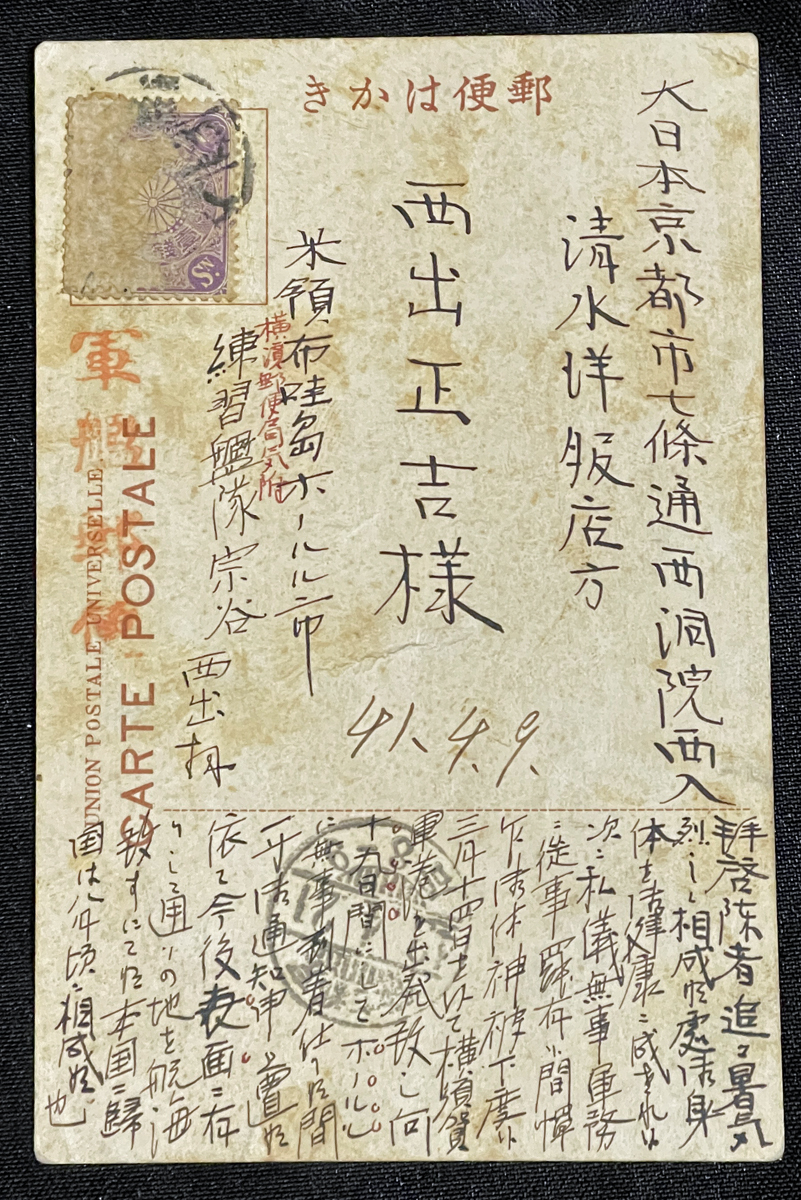 郵便はかき
大日本京都市七條通西洞院西入
清水洋服店方
西出正吉様
米領布哇島ホールル市
横濱郵便局気附
練習艦隊宗谷
西出
軍艦郵便
UNION POSTALE UNIVERSELLE
CARTE POSTALE
41. 4. 9.
拝啓陳者追々暑気
烈しく相成候處御身
体を御健康ニ成され
次ニ私儀無事軍務
ニ従事罷在候間憚
乍御休神被下度候
三月十四日を以て横須賀
軍港を出発致し向
十九日間にしてホールル
に無事到着仕り候間
一寸御通知申上置候
依て今後表面ニ存
りし通りの地を航海
致すにて候本国ニ歸
国は八月頃ニ相成候也